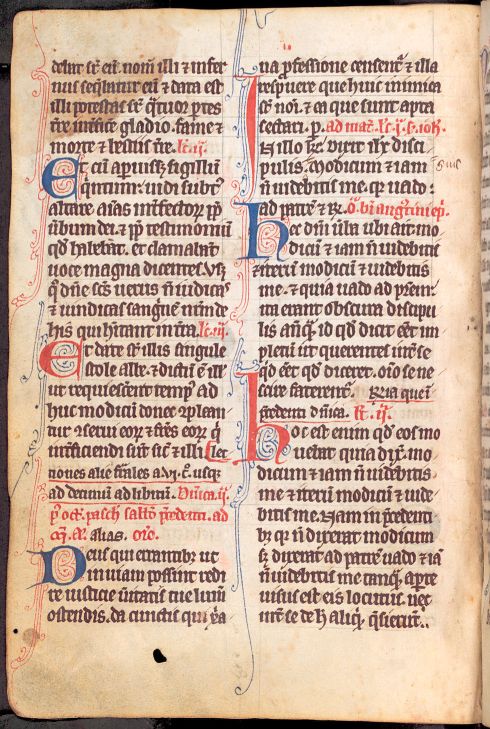 debat scͥ eū. noīn illi ⁊ infer
nus seq̄batur eū ⁊ data est
illi potestas sr̄ q̄tuor p̱tes
tr̄e int̄fic̄e gladio. fame ⁊
morte ⁊ bestiis tr̄e. lc̄. ij.
Et cū ap̱uisset sigillū
q̄ntum. uidi subt͛
altare aīas int̄fector̨ ꝓpt̄
u̓bum dei. ⁊ ꝓpt̄ testimoniū
qd̓ habebāt. et clamabāt
uoce magna dicentes. Vsq̨
q̊ dn̄e scs̄ uerus nō iudicas
⁊ uindicas sanguē nr̄m de
his qui hītant in tr̄a. lc̄. iij.
Et date st̄ illis singule
stole albe. ⁊ dictū ē ill
ut requiescerēt temp͛ ad
huc modicū donec ꝯplean
tur ꝯserui eor̨ ⁊ fr̄es eor̨ q̇
int̄ficiendi sūt sic̄ ⁊ illi. lec
tiones alie feriales a vi. f͛. usq̨
ad decimū ad libitū. Dn̄ica. ij.
p̊. oct̄. pasch. sabb̄o p̄cedēti. ad
alias. oro.
Deus qui errantib͛ ut
in uiam possint redi
re iusticie u̓itatis tue lumē
ostendis. da cunctis qui xp̄ia
na ꝓfessione censent͛ ⁊ illa
respuere que huic inimica
st̄ noī. ⁊ ea que sunt apta
sectari. p. ad mat̄. lc̄. i. s. ioh̄.
In illo tp̄r. dixit ihc̄ disci
pulis. Modicum ⁊ iam suis
nō uidebitis me. q̇ uado
ad patrē ⁊ r̄. o. bī augustini ep̄i.
hec dn̄i u̓ba ubi ait mo
dicū ⁊ iam nō uidebitis
⁊ iterū modicū ⁊ uidebitis
me. ⁊ quia uado ad p̄rem.
ita erant obscura discipu
lis an̄q̄ id qd̓ dicit eēt im
pletū ut querentes int̄ se
qd̓ eēt qd̓ diceret. oīo se ne
scire faterent͛. Quia que ī
p̄cedenti dn̄ica. lc̄. ij.
hoc est enim qd̓ eos mo
uebat quia dixit. mo
dicum ⁊ iam nō uidebitis
me ⁊ iterū modicū ⁊ uide
bitis me. Nam in p̄cedenti
b͛ q̇ nō dixerat modicum
s͛ dixerat ad patrē uado ⁊ iā
nō uidebitis me tanq̄ ap̱te
uisus est eis locutus. nec
int̄ se de h̊ aliq̇ q̄sierūt.